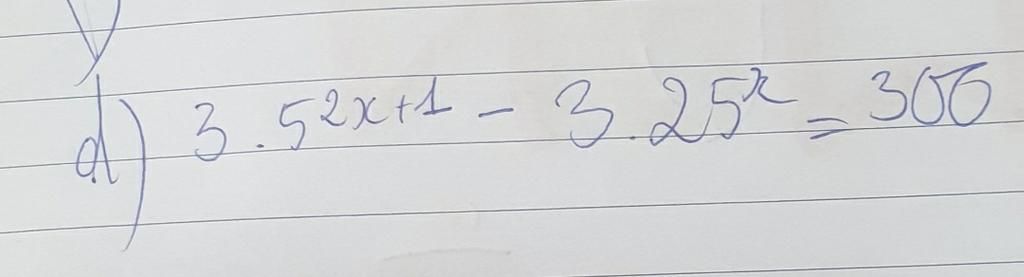 d) 3.5²ˣ⁺¹ - 3.25ˣ = 300